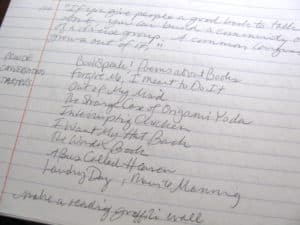 "If you give people a good book to talk
about, you can build a community out
of a diverse group. A common
grows out of it."
BookSpeak! Poems about Books
Forgive Me, I Meant to Do It
Out of My Mind
The Strange Case of Origami Yoda
Interrupting Chicken
I Want My Hat Back
Book
A Bus Called Heaven
Laundry Day, Maurie Manning
make a reading graffiti wall